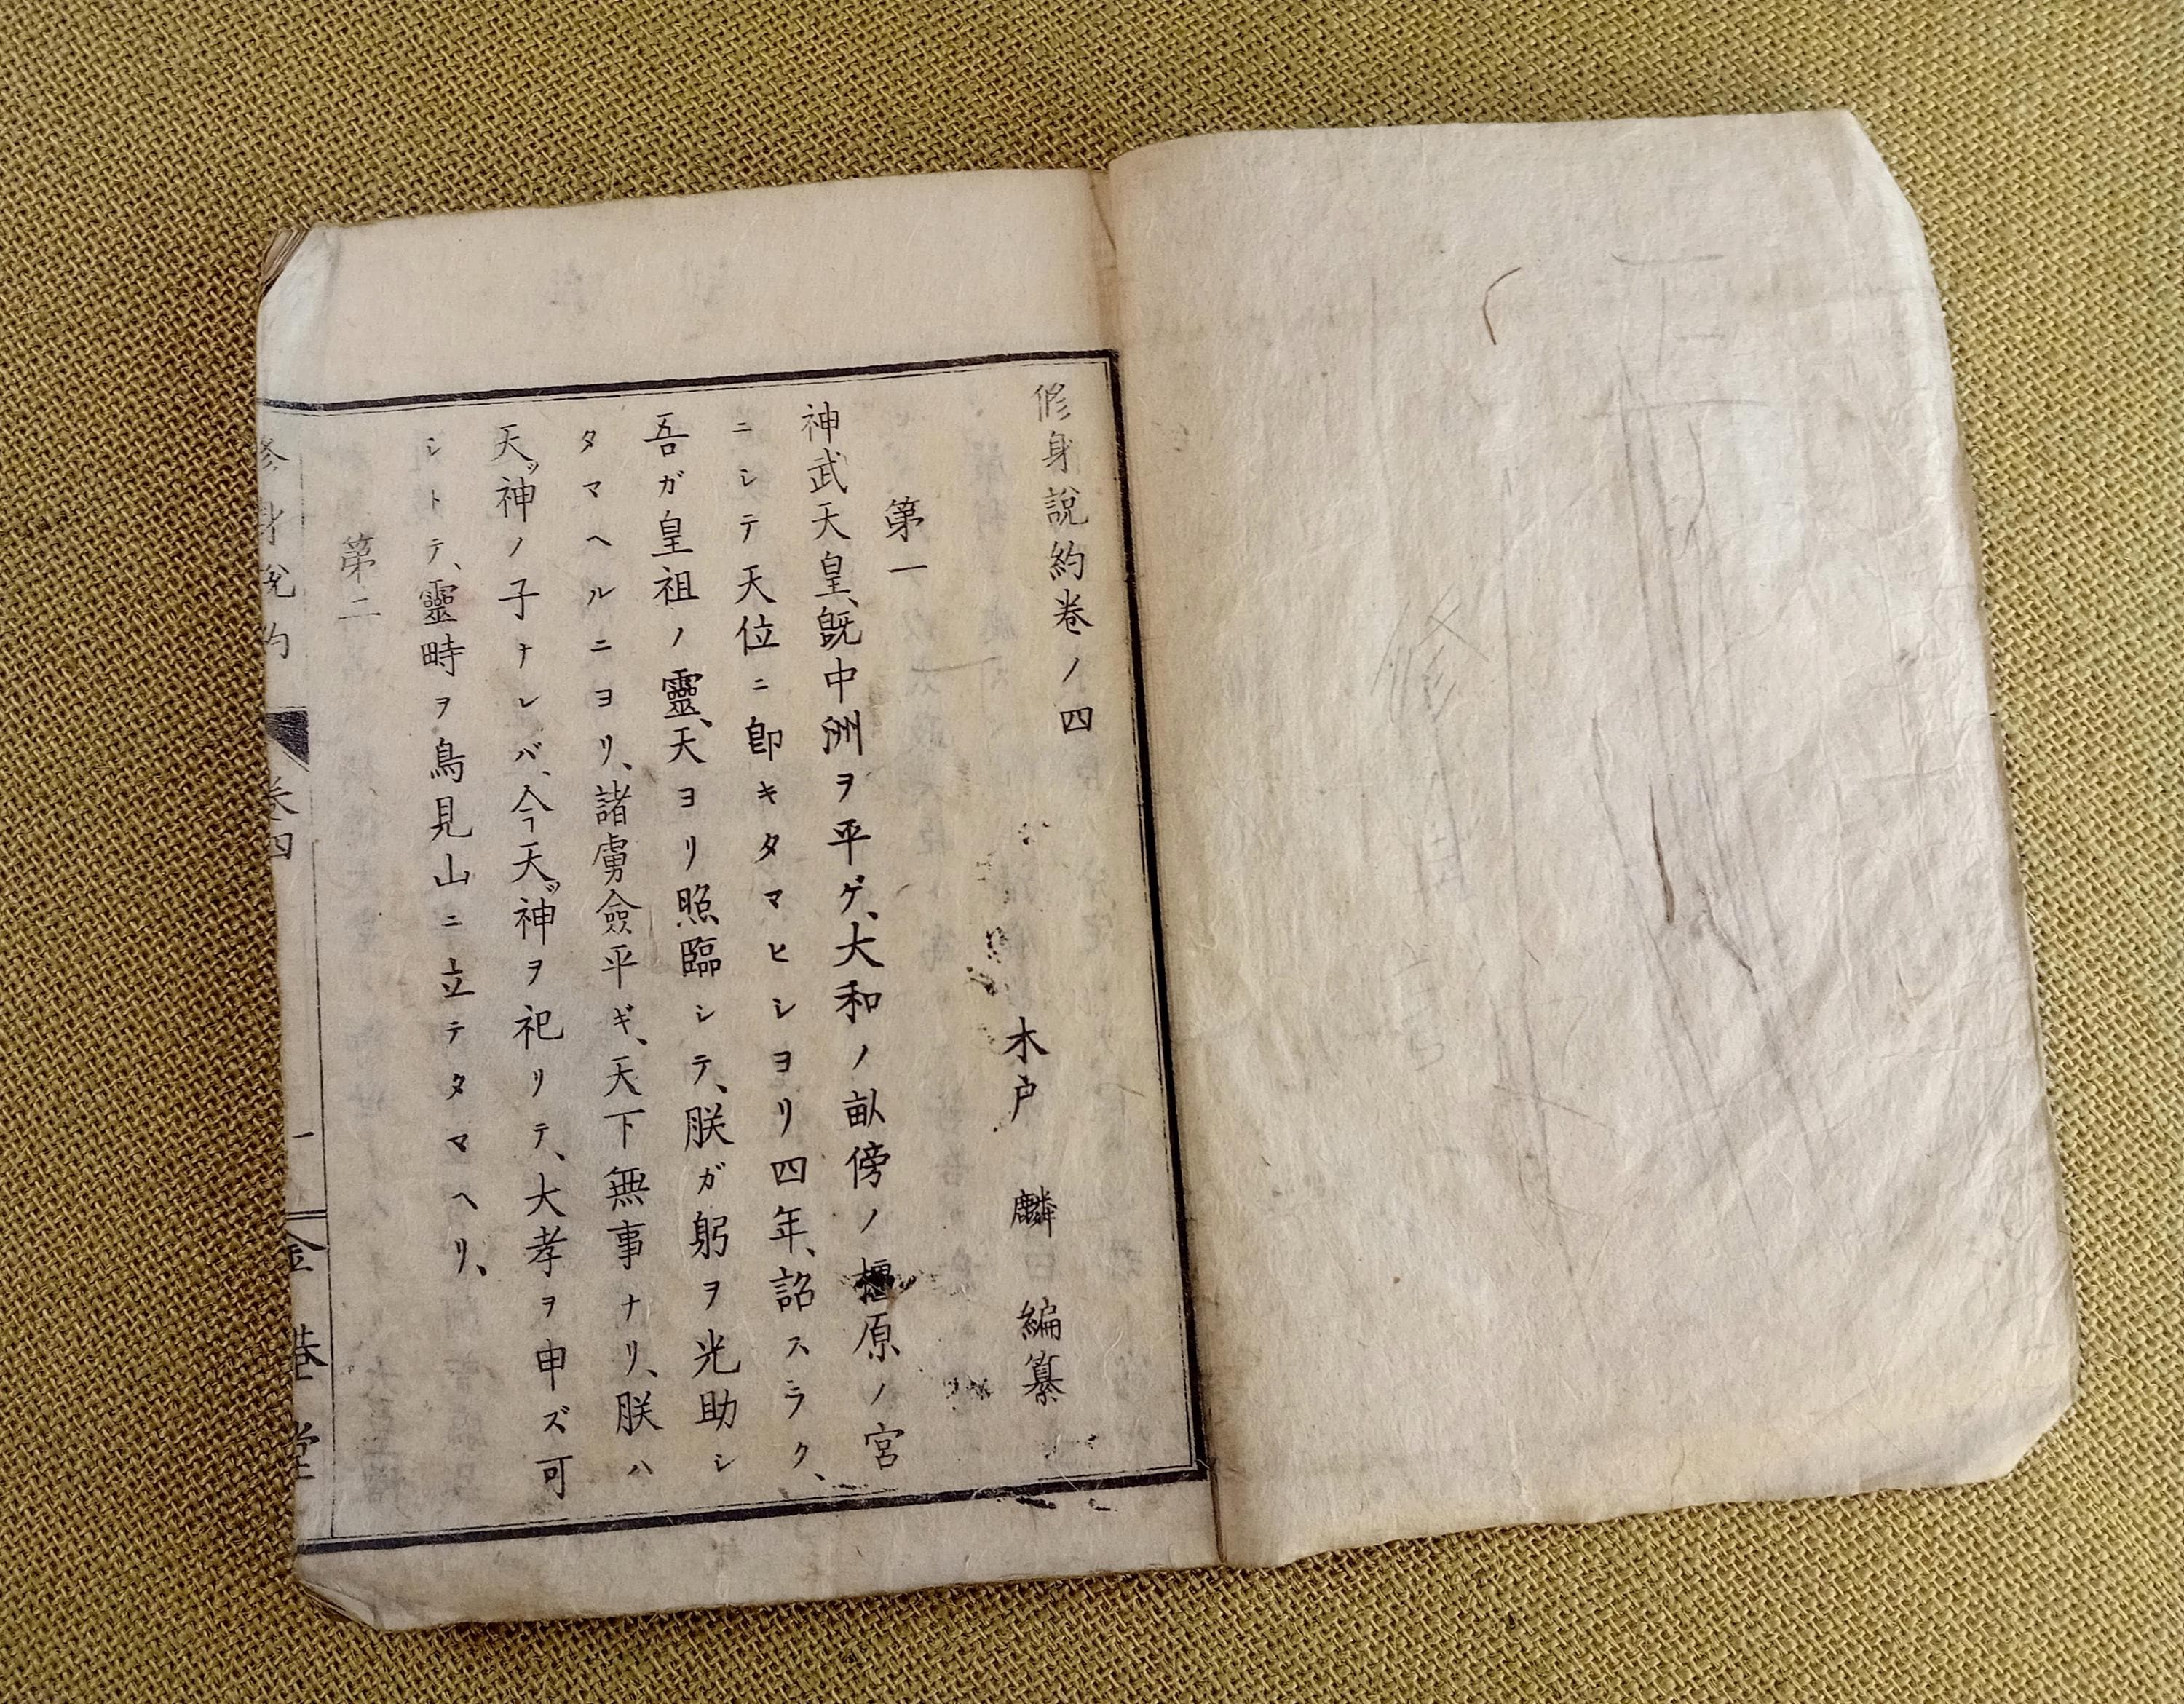 修身說約卷ノ四
木戶 麟 編纂
第一
神武天皇、既中洲ヲ平ゲ、大和ノ畝傍ノ橿原ノ宮
ニシテ天位ニ卽キタマヒシヨリ四年、詔スラク、
吾ガ皇祖ノ靈、天ヨリ照臨シテ、朕ガ躬ヲ光助シ
タマヘルニヨリ、諸虜僉平ギ、天下無事ナリ、朕ハ
天ツ神ノ子ナレバ、今天ツ神ヲ祀リテ、大孝ヲ申ズ可
シトテ、靈畤ヲ鳥見山ニ立テタマヘリ、
第二
修身說約 卷四 一 金港堂